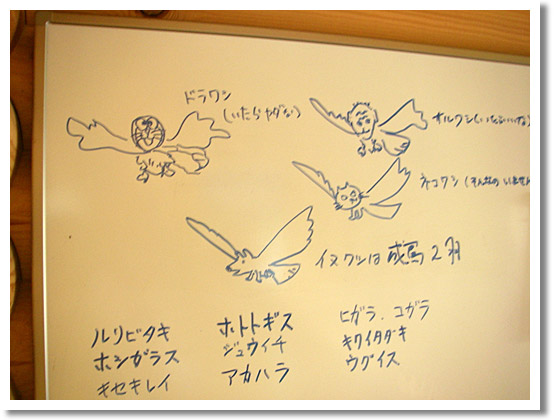 ドラワシ
(いたらヤダな)
オルワシ(いたらいいな)
ネコワシ(そんなの いません
イヌワシは 成鳥 2羽
ルリビタキ
ホシガラス
キセキレイ
ホトトギス
ジュウイチ
アカハラ
ヒガラ. コガラ
キクイタダキ
ウグイス